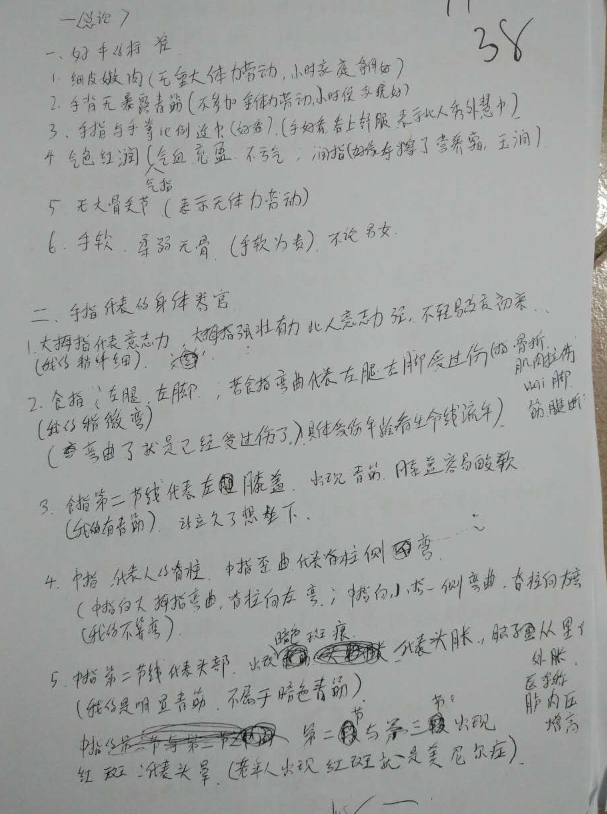 一(总论)
38
一、好手的标准
1. 细皮嫩肉(无重大体力劳动,小时家庭条件好)
2. 手背无暴露青筋(不参加重体力劳动,小时侯家境好)
3. 手指与手掌比例适中(好看)(手好看者上封服 表示此人秀外慧中)
4. 气色红润(气血充盈.不亏气,润指(好像存擦了营养霜,玉润)
气指
5 无大骨关节(表示无体力劳动)
6. 手软.柔弱无骨.(手软为贵).不论男女.
二、手指代表的身体器官
1.大拇指代表意志力,大拇指强壮有力 此人意志力强,不轻易改变初衷.
(我的 精神细).
2. 食指:左腿.左脚.;若食指弯曲代表左腿左脚受过伤(如骨折,
肌肉拉伤
脚
筋腱断
(我的稍微弯)
(弯曲了就是已经受过伤了,)具体受伤年龄看生命线流年)
3. 食指第二节线代表左膝盖.出现青筋.膝盖容易酸软
(我的有青筋).站立久了想坐下.
4. 中指.代表人的脊柱.中指歪曲代表脊柱侧弯.
(中指向大拇指弯曲,脊柱向左弯.;中指向小指一侧弯曲.脊柱向右弯
(我的不算弯).
5. 中指第二节线代表头部.出现暗色斑痕代表头胀.,脑子里从里往
外胀.
医学称
脑内压
增高
(我的是明显青筋.不属于暗色青筋)
第二节与第三节出现
红斑:代表头晕.(老年人出现红斑就是美尼尔症).